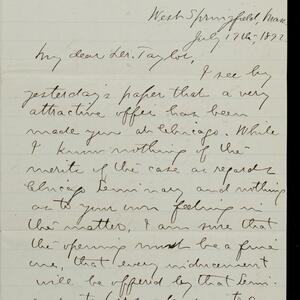 West Springfield, Mass
July 17th 1892
My dear Dr. Taylor,
I see by
yesterday's paper that a very
attractive offer has been
made you at Chicago. While
I know nothing of the
merits of the case as regards
Chicago Seminary and nothing
as to your own feeling in
the matter, I am sure that
the opening must be a fine
one, that every inducement
will be offered by that Semi-